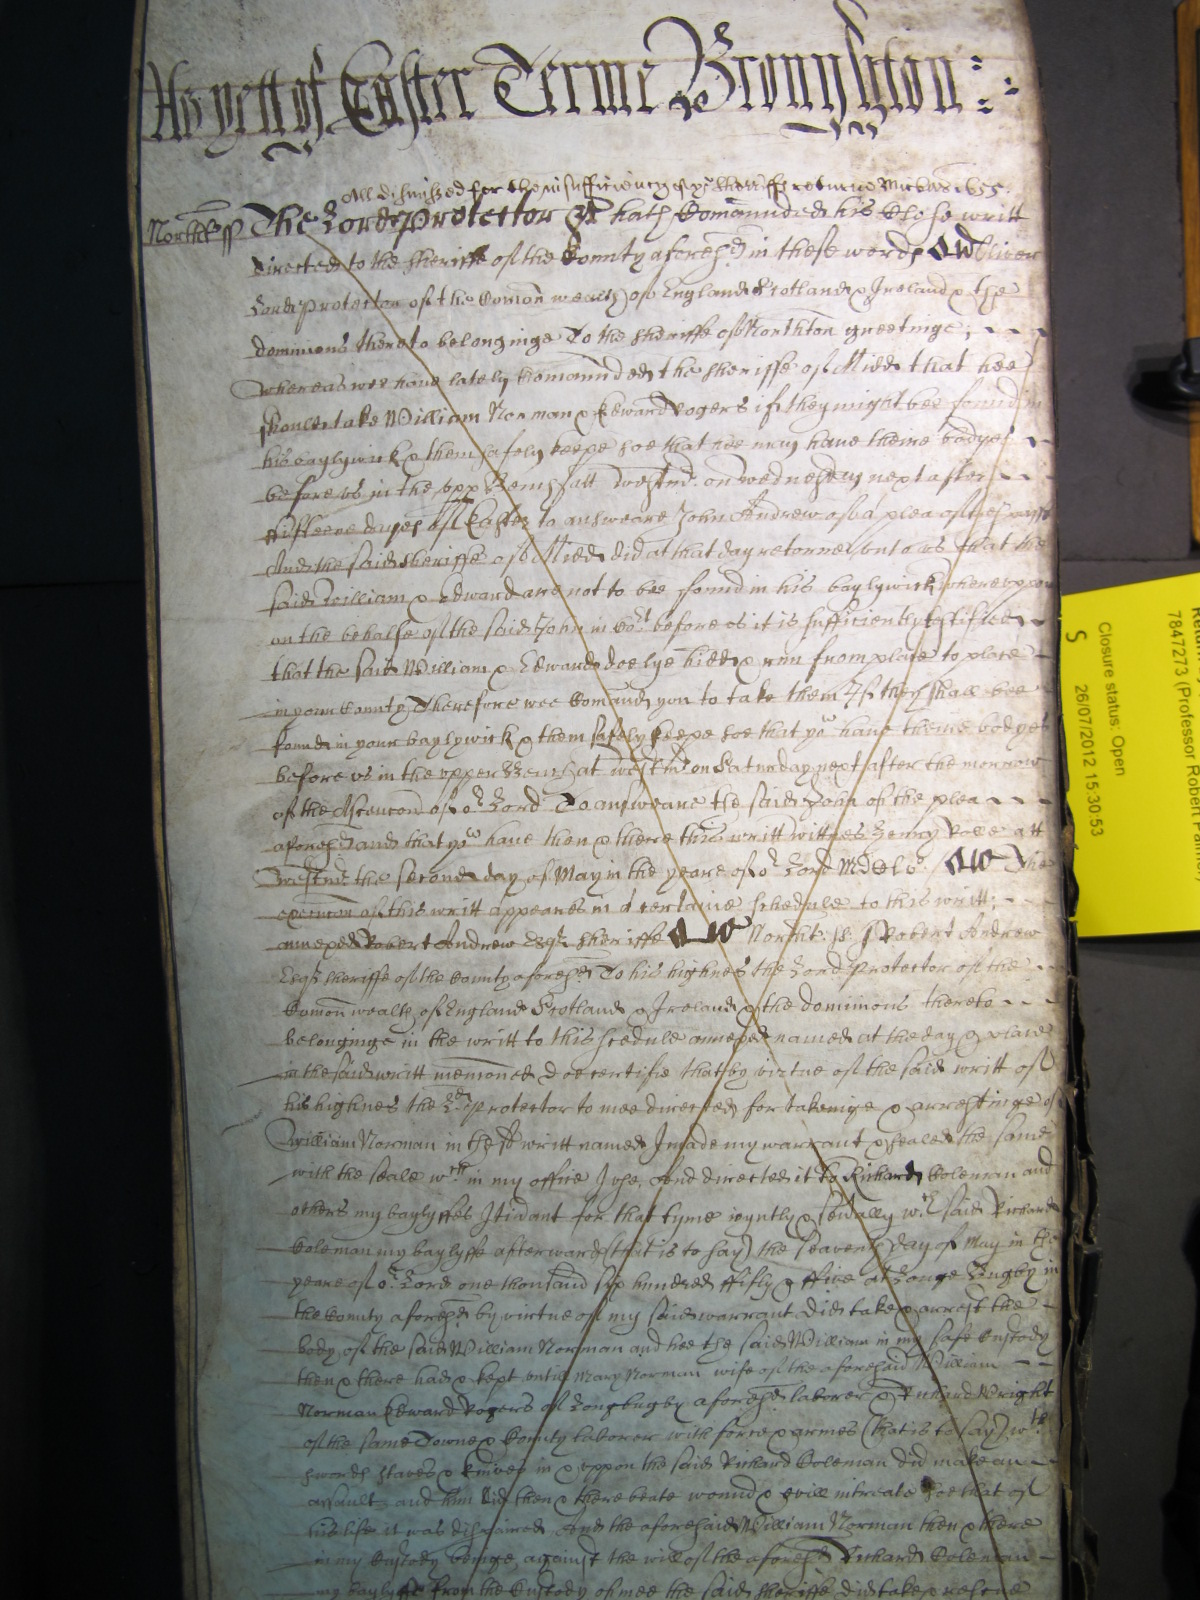 As yett of Easter Terme Broughton
All dismissed for the insufficiency of ye Sheriffs returne Michas 1655.
Northt ss The Lord Protector hath Comaunded his Close writt
directed to the Sheriffe of the County aforesd in these words Oliver
Lord Protector of the Comon wealth of England Scotland & Ireland & the
dominions thereto belonginge To the Sheriffe of Northton greetinge;
whereas wee have lately Comaunded the Sheriffe of Midd that hee
should take William Norman & Edward Rogers if they might bee found in
his baylywick & them safely keepe soe that hee may have theire bodyes
before us in the upp Bench att Westmr. on Wednesday next after
fifteene dayes of Easter to answeare John Andrew of a plea of trespasse
And the said Sheriffe of Midd did at that day returne unto us that the
said William & Edward are not to bee found in his baylywick whereuppon
on the behalfe of the said John in Cort before us it is sufficiently testified
that the said William & Edward doe lye hidd & run from place to place
in your County Therefore wee Comaund you to take them If they shall bee
found in your baylywick & them safely keepe soe that you have theire bodyes
before us in the upper Bench at Westmr on Saturday next after the morrow
of the Ascencon of or Lord To answeare the said John of the plea
aforesd and that you have then & there this writt wittnes Henry Rolle att
Westmr the second day of May in the yeare of or Lord MDCLV. The
execucon of this writt appeares in a certaine schedule to this writt;
annexed Robert Andrew Esqr Sheriffe Northt: ss I Robert Andrew
Esqr Sheriffe of the County aforesd To his highnes the Lord Protector of the
Comon wealth of England Scotland & Ireland & the dominions thereto
belonginge in the writt to this scedule annexed named at the day & place
in the said writt menconed Doe certifie that by virtue of the said writt of
his highnes the Ld Protector to mee directed for takeinge & arrestinge of
William Norman in the sd writt named I made my warrant & sealed the same
with the seale wch in my office I use, And directed it to Richard Coleman and
others my baylyffes Itinant for that tyme ioyntly & sevally wch said Richard
Coleman my baylyffe afterwards (that is to say) the seaventh day of May in the
yeare of or Lord one thousand six hundred fifty & five at Longe Bugby in
the County aforesd by virtue of my said warrant did take & arrest the
body of the said William Norman and hee the said William in my safe Custody
then & there had & kept untill Mary Norman wife of the aforesaid William
Norman Edward Rogers of Longbugby aforesd laborer & Richard Wright
of the same Towne & County laborer with force & armes (that is to say) wth
swords staves & knives in & uppon the said Richard Coleman did make an
assault and him did then & there beate wound & evill intreate soe that of
his life it was dispaired And the aforesaid William Norman then & there
in my Custody beinge, against the will of the aforesd Richard Coleman
my baylyffe from the Custody of mee the said Sheriffe did take & rescue
Closure status: Open
7847273 (Professor Robert Palmer)
S 26/07/2012 15:30:53